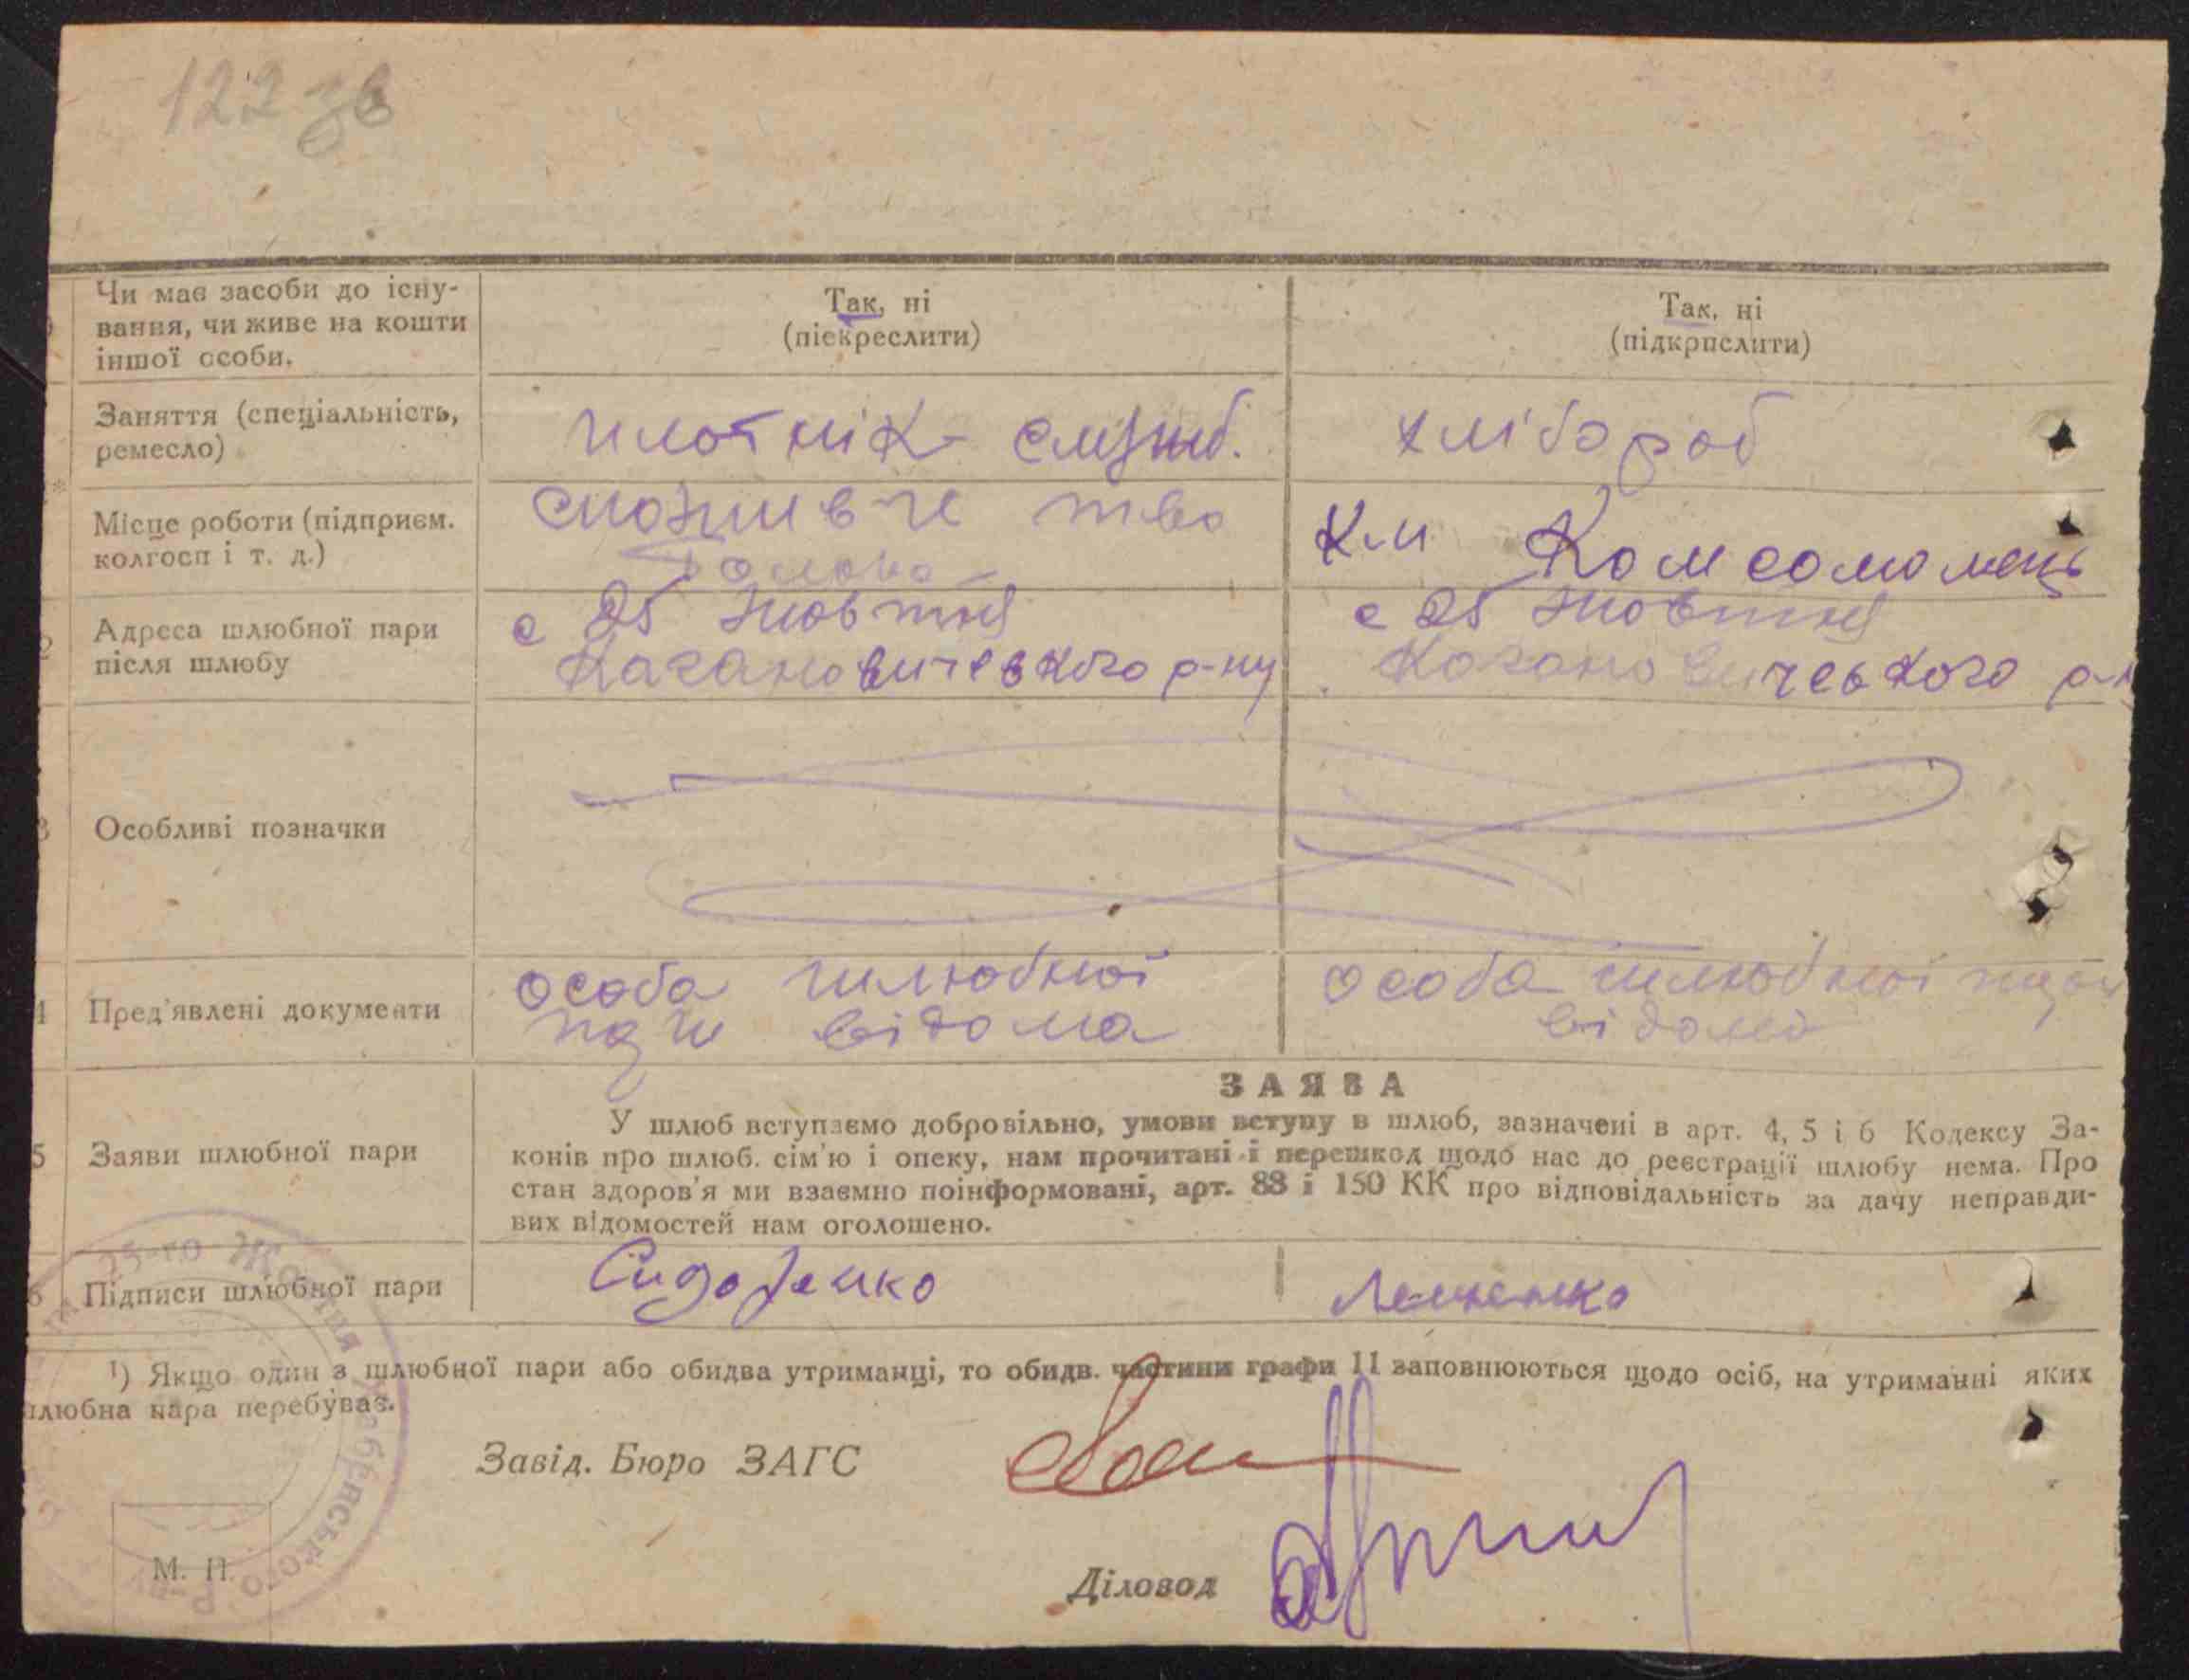 122 зв
Чи має засоби до існу-
вання, чи живе на кошти
іншої особи.
Так, ні
(піекреслити)
Так, ні
(підкрпслити)
Заняття (спеціальність,
ремесло)
плотнік служб.
хлібороб
Місце роботи (підприєм.
колгосп і т. д.)
споживче т-во
к-п Комсомолець
2 Адреса шлюбної пари
після шлюбу
с 25 Жовтня
Кагановичевкого р-ну
с 25 Жовтня
Кагановичевкого р-н
3 Особливі позначки
4 Пред'явлені документи
особа шлюбної
пари відома
особа шлюбної пари
відома
5 Заяви шлюбної пари
ЗАЯВА
У шлюб вступаємо добровільно, умови вступу в шлюб, зазначені в арт. 4, 5 і 6 Кодексу За-
конів про шлюб. сім'ю і опеку, нам прочитані і перешкод щодо нас до реєстрації шлюбу нема. Про
стан здоров'я ми взаємно поінформовані, арт. 88 і 150 КК про відповідальність за дачу неправди-
вих відомостей нам оголошено.
6 Підписи шлюбної пари
Сидоренко
Лещенко
1) Якщо один з шлюбної пари або обидва утриманці, то обидв. частини графи 11 заповнюються щодо осіб, на утриманні яких
шлюбна пара перебуває.
Завід. Бюро ЗАГС
Діловод
М. П.
25-го Жовтня
Р-ну